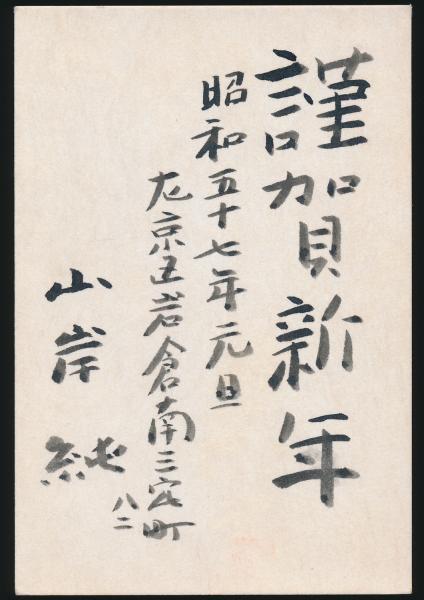 謹賀新年
昭和五十七年元旦
左京区岩倉南三宅町
八二
山岸純